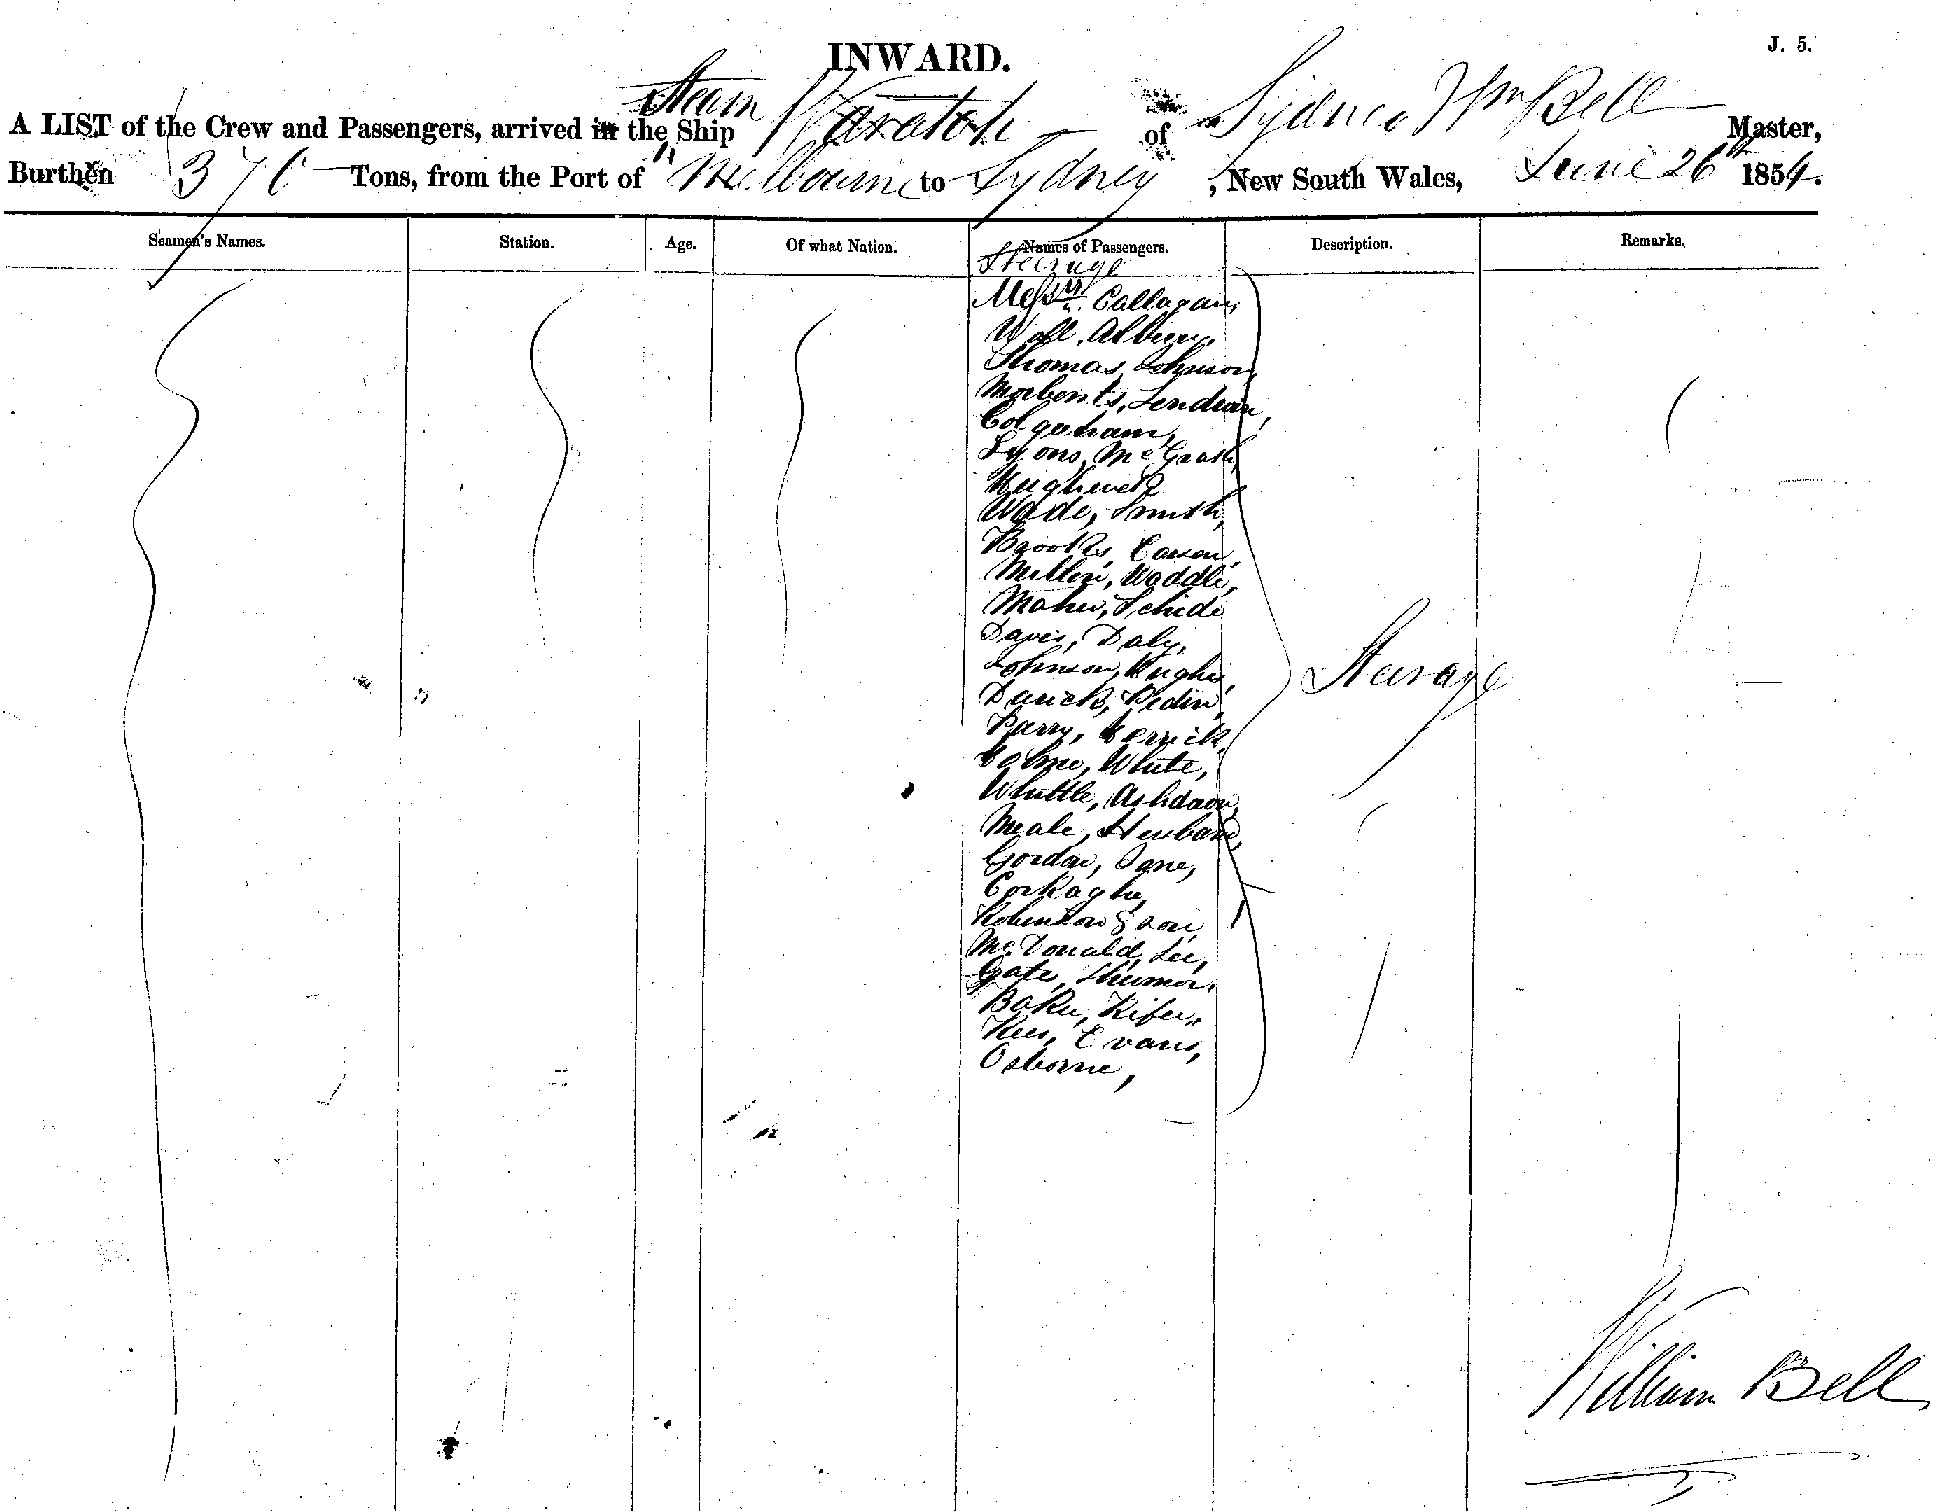 J. 5.
INWARD.
A LIST of the Crew and Passengers, arrived in the Steam Ship Waratah of Sydney Wm Bell Master,
Burthen 376 Tons, from the Port of Melbourne to Sydney, New South Wales, June 26th 1854.
Seamen's Names. Station. Age. Of what Nation. Names of Passengers. Description. Remarks.
Steerage
Messrs. Callagan,
Woll, Albury,
Thomas, Johnson,
Lendran,
Colquham,
Lyons, McGrath,
Wade, Smith,
Brooks,
Waddle,
Maher,
Davis, Daly,
Johnson, Hughes,
Parry,
White,
Whittle, Ashdown,
Meale, Husband,
Gordon, Jane,
Robinson & son,
McDonald, Lee,
Gate,
Baker, Kifer,
Rees, Evans,
Osborne,
Steerage
William Bell